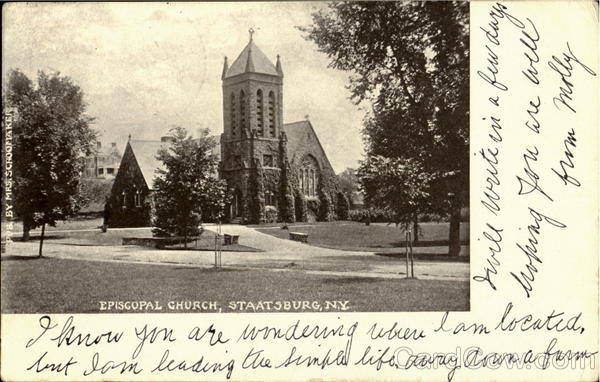 PUB. BY MRS. SCHOOMAKER
EPISCOPAL CHURCH, STAATSBURG, N.Y.
I know you are wondering where I am located,
but I am leading the simple life, away down a farm
will write in a few days
hoping you are well
from Molly
CardCow.com